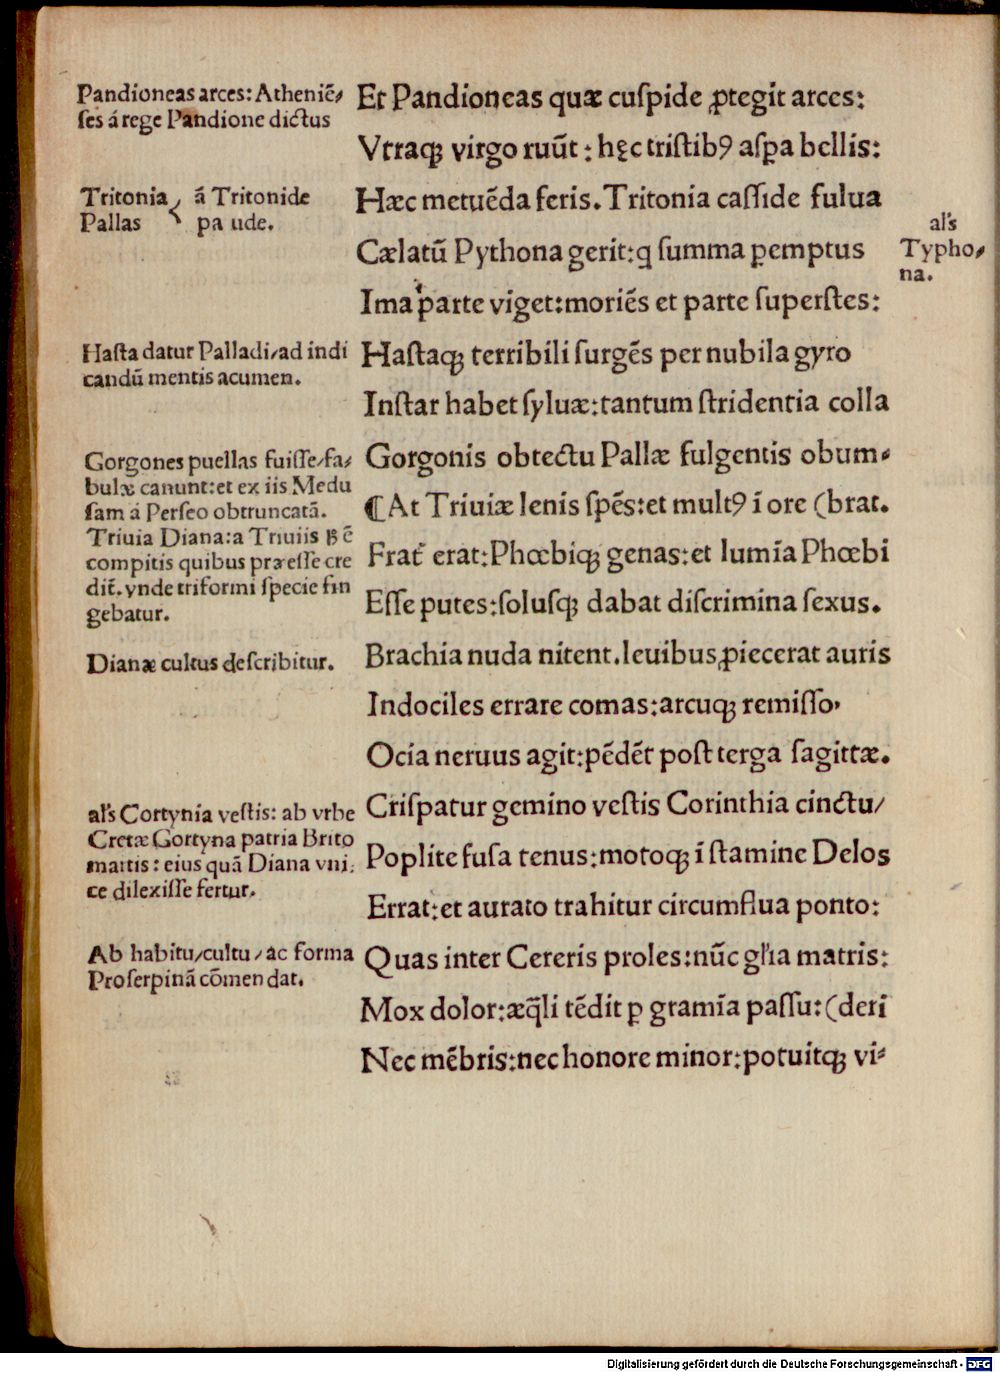 Pandioneas arces: Atheniē⸗
ſes á rege Pandione dictus
Tritonia ā Tritonide
Pallas pa ude.
Haſta datur Palladi/ad indi
candū mentis acumen.
Gorgones puellas fuiſſe/fa⸗
bulæ canunt:et ex iis Medu
ſam á Perſeo obtruncatā.
Triuia Diana:a Triuiis ꝶ ē
compitis quibus præeſſe cre
dit̄.vnde triformi ſpecie fin
gebatur.
Dianæ cultus deſcribitur.
al's Cortynia veſtis: ab vrbe
Cretæ Gortyna patria Brito
martis: eius quā Diana vni⸗
ce dilexiſſe fertur.
Ab habitu/cultu/ac forma
Proſerpinā cōmendat.
Et Pandioneas quæ cuſpide ꝓtegit arces:
Vtraqꝫ virgo ruūt: hęc triſtibꝰ aſꝑa bellis:
Hæc metuēda feris. Tritonia caſſide fulua
Cælatū Pythona gerit:q̄ ſumma ꝑemptus
Ima parte viget:moriēs et parte ſuperſtes:
Haſtaqꝫ terribili ſurgēs per nubila gyro
Inſtar habet ſyluæ:tantum ſtridentia colla
Gorgonis obtectu Pallæ fulgentis obum⸗
¶At Triuiæ lenis ſpēs:et multꝰ ī ore (brat.
Frat̄ erat:Phœbiqꝫ genas:et lumīa Phœbi
Eſſe putes:ſoluſqꝫ dabat diſcrimina ſexus.
Brachia nuda nitent.leuibus ꝓiecerat auris
Indociles errare comas:arcuqꝫ remiſſo
Ocia neruus agit:pēdēt poſt terga ſagittæ.
Criſpatur gemino veſtis Corinthia cinctu/
Poplite fuſa tenus:motoqꝫ ī ſtamine Delos
Errat:et aurato trahitur circumflua ponto:
Quas inter Cereris proles:nūc gl'ia matris:
Mox dolor:æq̄li tēdit ꝑ gramīa paſſu: (deri
Nec mēbris:nec honore minor:potuitqꝫ vi⸗
al's
Typho⸗
na.
Digitalisierung gefördert durch die Deutsche Forschungsgemeinschaft - DFG